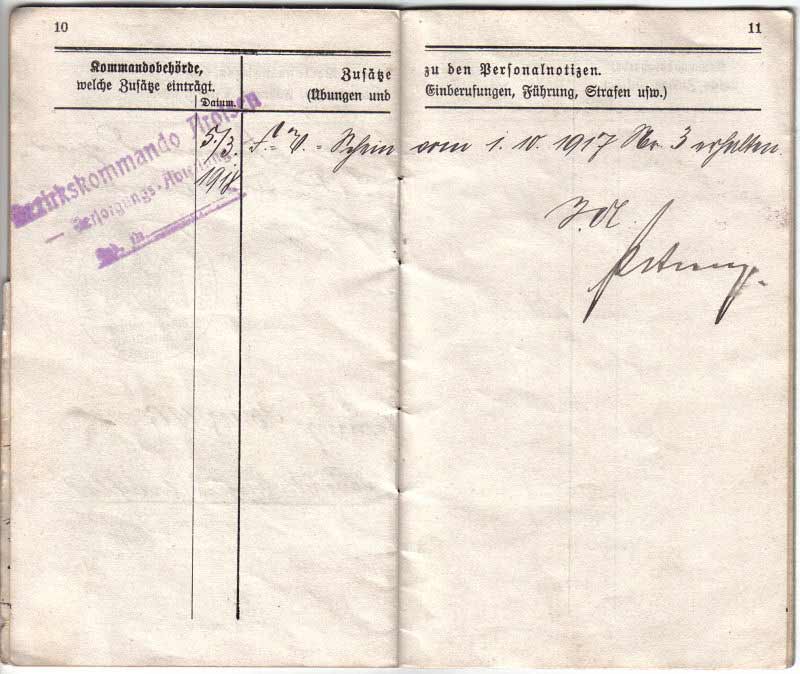 10
Kommandobehörde,
welche Zusätze einträgt.
Datum.
Zusätze
(Übungen und
Bezirkskommando Arolsen
Versorgungs-Abteilung
5./3.
1918
Schein
11
zu den Personalnotizen.
Einberufungen, Führung, Strafen usw.)
vom 1. 10. 1917 Nr. 3 erhalten.
J. A.